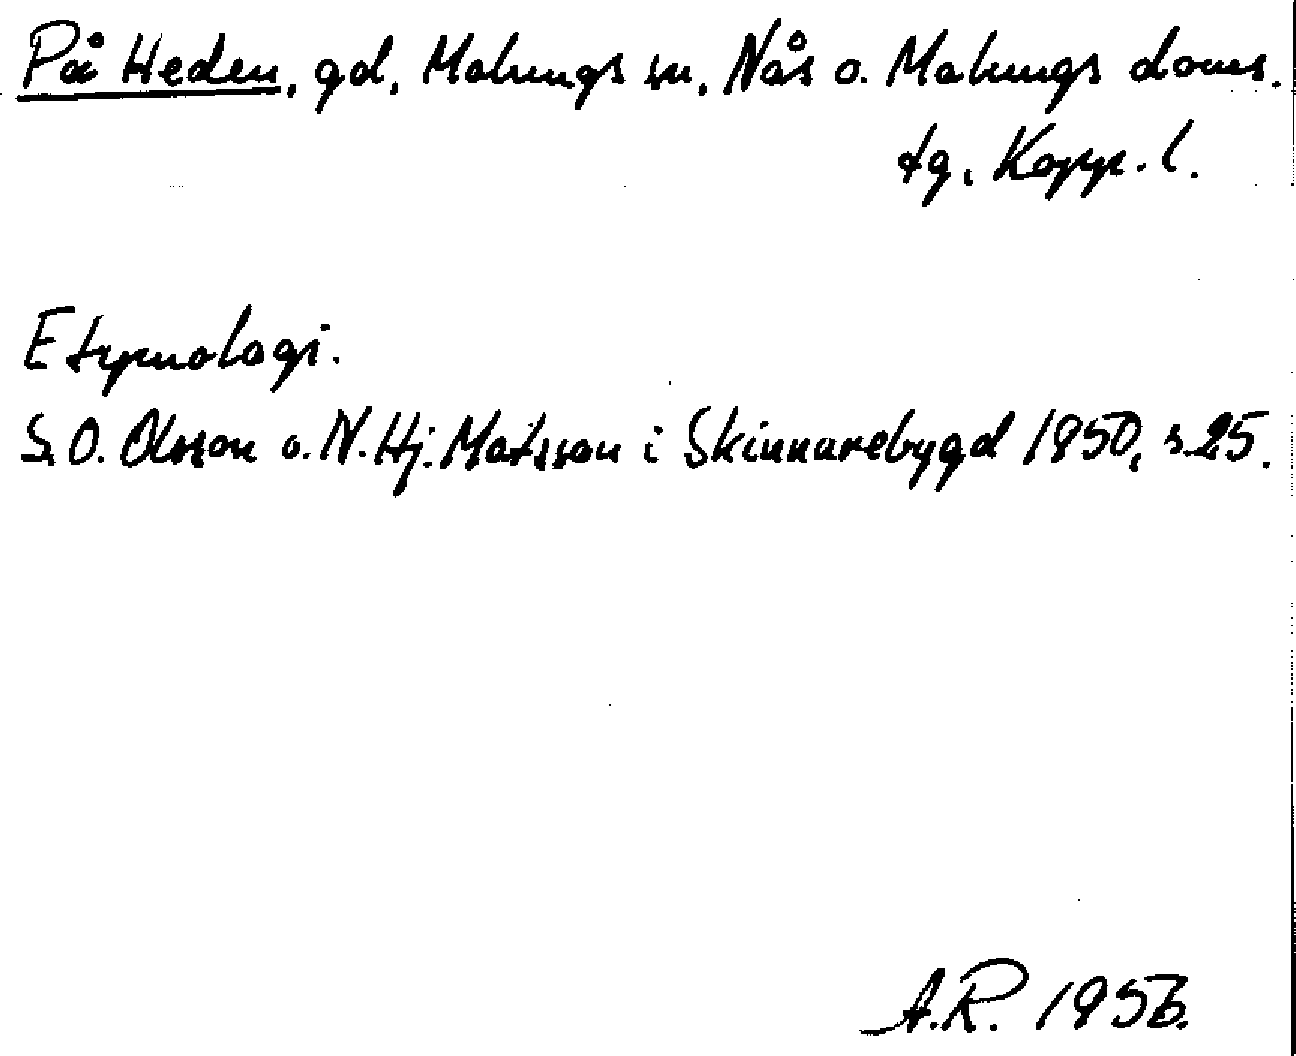 På Heden, gd, Malungs sn, Nås o. Malungs doms.
tg, Kopp. l.
Etymologi.
S.O. Olsson o. N. Hj. Matsson i Skinnarebygd 1950, s.25.
A.R. 1956.